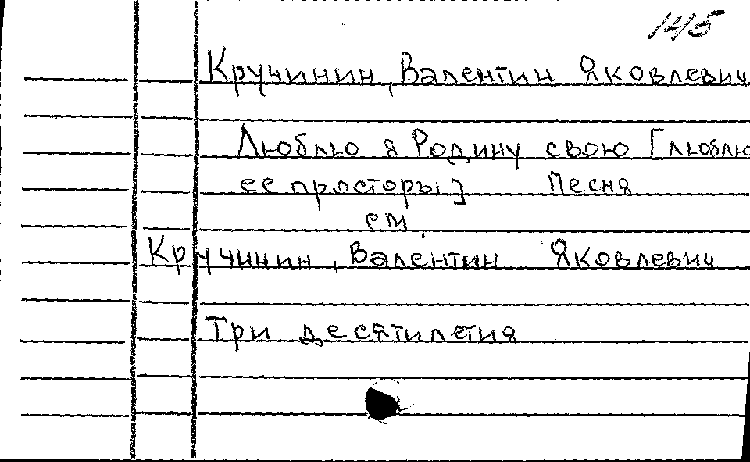 145
Кручинин, Валентин Яковлевич
Люблю я Родину свою [люблю
ее просторы] Песня
см.
Кручинин, Валентин Яковлевич
Три десятилетия